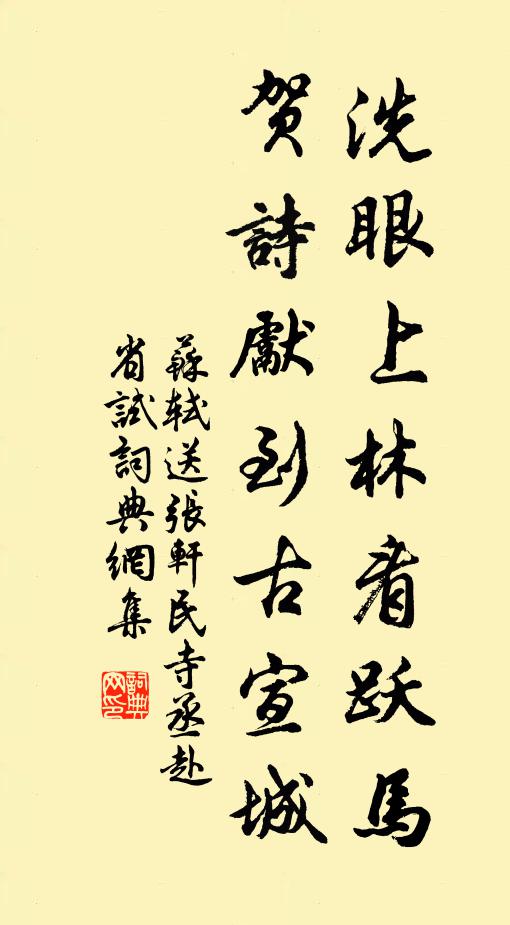 洗眼上林看跃馬
贺詩獻到古宣城
蘇軾送張軒民寺丞赴
省試詞典網集
詞典網印